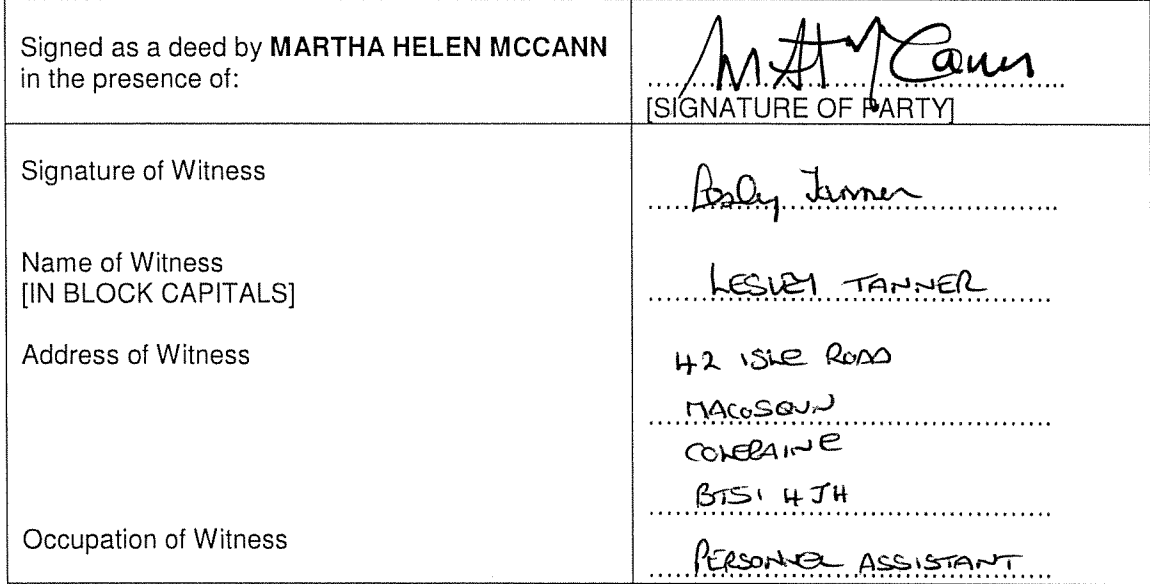 Signed as a deed by MARTHA HELEN MCCANN
in the presence of:
M H McCann
[SIGNATURE OF PARTY]
Signature of Witness
Lesley Tanner
Name of Witness
[IN BLOCK CAPITALS]
LESLEY TANNER
Address of Witness
42 ISLE ROAD
MACOSQUIN
COLERAINE
BT51 4JH
Occupation of Witness
PERSONNEL ASSISTANT